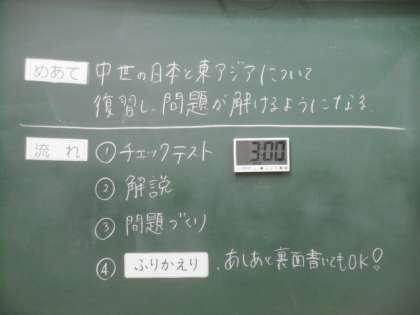 めあて 中世の日本と東アジアについて
復習し、問題が解けるようになる。
流れ ①チェックテスト 3:00
②解説
③問題づくり
④ふりかえり、あしあと裏面書いてもOK!